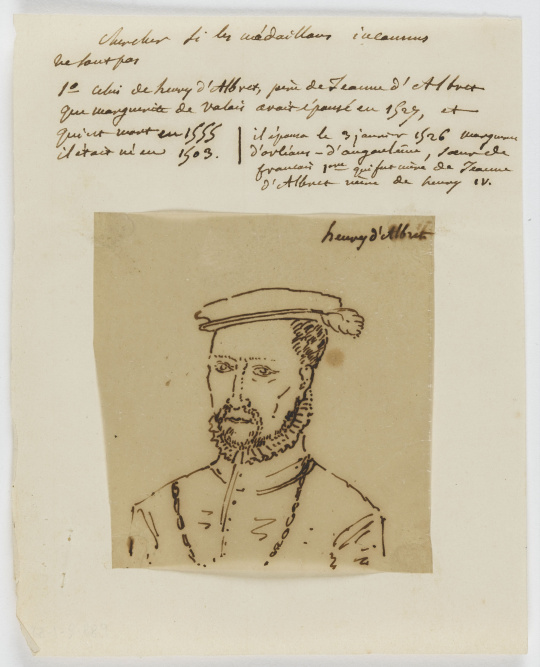 Chercher si les médaillons inconnus
ne sont pas
1º celui de henry d'Albret, père de Jeanne d'Albret
que marguerite de valois avait épousé en 1527, et
qui est mort en 1555
il était né en 1503.
il épousa le 3 janvier 1526 marguerite
d'orléans - d'angoulême, sœur de
francois 1er qui fut mère de Jeanne
d'Albret mère de henry IV.
henry d'Albret